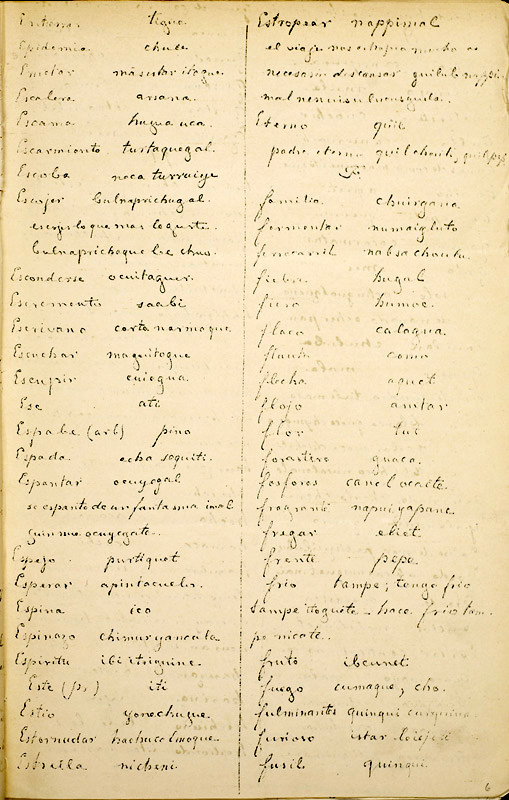 Enterrar tigua.
Epidemia chule
Escalera arsana.
Escama hugua uca.
Escarmiento turtaquegal.
Escoba noca turruije
Escojer bulnaprichugal.
escoje lo que mas te guste.
bulnaprichoque be chuo.
Esconderse ocuitaguer.
Escremento saabi
Escrivano corta narmaque
Escuchar maquitogue
Escupir euiogua.
Ese ati
Espabe (arb) pino
Espada echa soquiti.
Espantar ocuyegal
se espanto de un fantasma imal
guin mu ocuyegate.
Espejo purtiquet
Esperar apintacuelo.
Espina ico
Espinazo chimuryancala
Espiritu ibi itiquine.
Este (pr) iti
Estio yonechuque.
Estornudar hachucolmoque.
Estrella nicheni
Estropear nappimal
el viaje nos estropea mucho es
necesario descansar
Eterno quil
padre eterno quil choutu,
familia chuirgana
fermentar numaigluto
ferrocarril nabsa choutu.
fiebre hugal
fiero humoe.
flaco calagua.
flauta como
flecha aquet
flojo amtar
flor tut
forastero guaca.
fosforos canel ocalte.
fragrante napuiyapane
fregar eliet
frente pepe
frio tampe; tengo frio
tampe itoguete - hace frio tam.
pe nicate.
fruto ibcunet
fuego cumaque, cho.
fulminantes quinqui
furioso istar
fusil quinqui
6